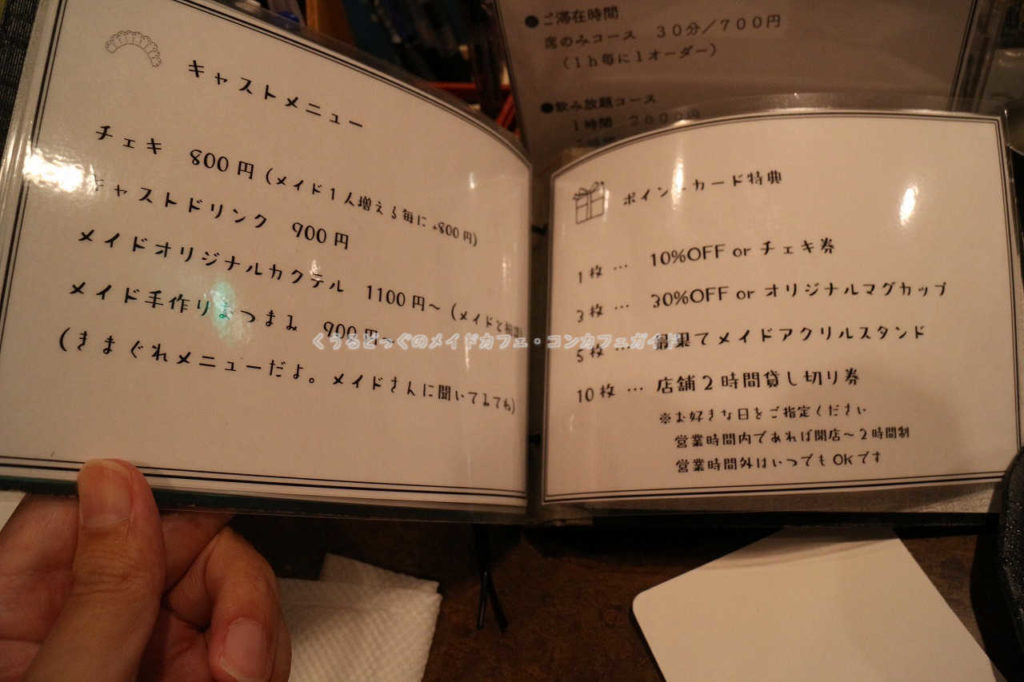 ●ご滞在時間
席のみコース 30分／700円
（1h毎に1オーダー）
●飲み放題コース
1時間
キャストメニュー
チェキ 800円（メイド1人増える毎に+800円）
キャストドリンク 900円
メイドオリジナルカクテル 1100円～（メイドと
メイド手作りおつまみ 900円～
（きまぐれメニューだよ。メイドさんに聞いてみてね）
ポイントカード特典
1枚 … 10%OFF or チェキ券
3枚 … 30%OFF or オリジナルマグカップ
5枚 … 最果てメイドアクリルスタンド
10枚 … 店舗2時間貸し切り券
※お好きな日をご指定ください
営業時間内であれば開店～2時間制
営業時間外はいつでもOKです
くうるどっぐのメイドカフェ・コンカフェガイド